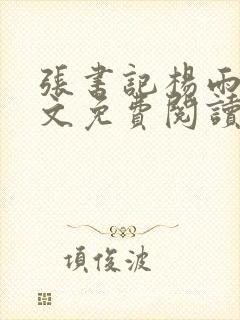 張書記楊雨
文免費閱讀
項俊波